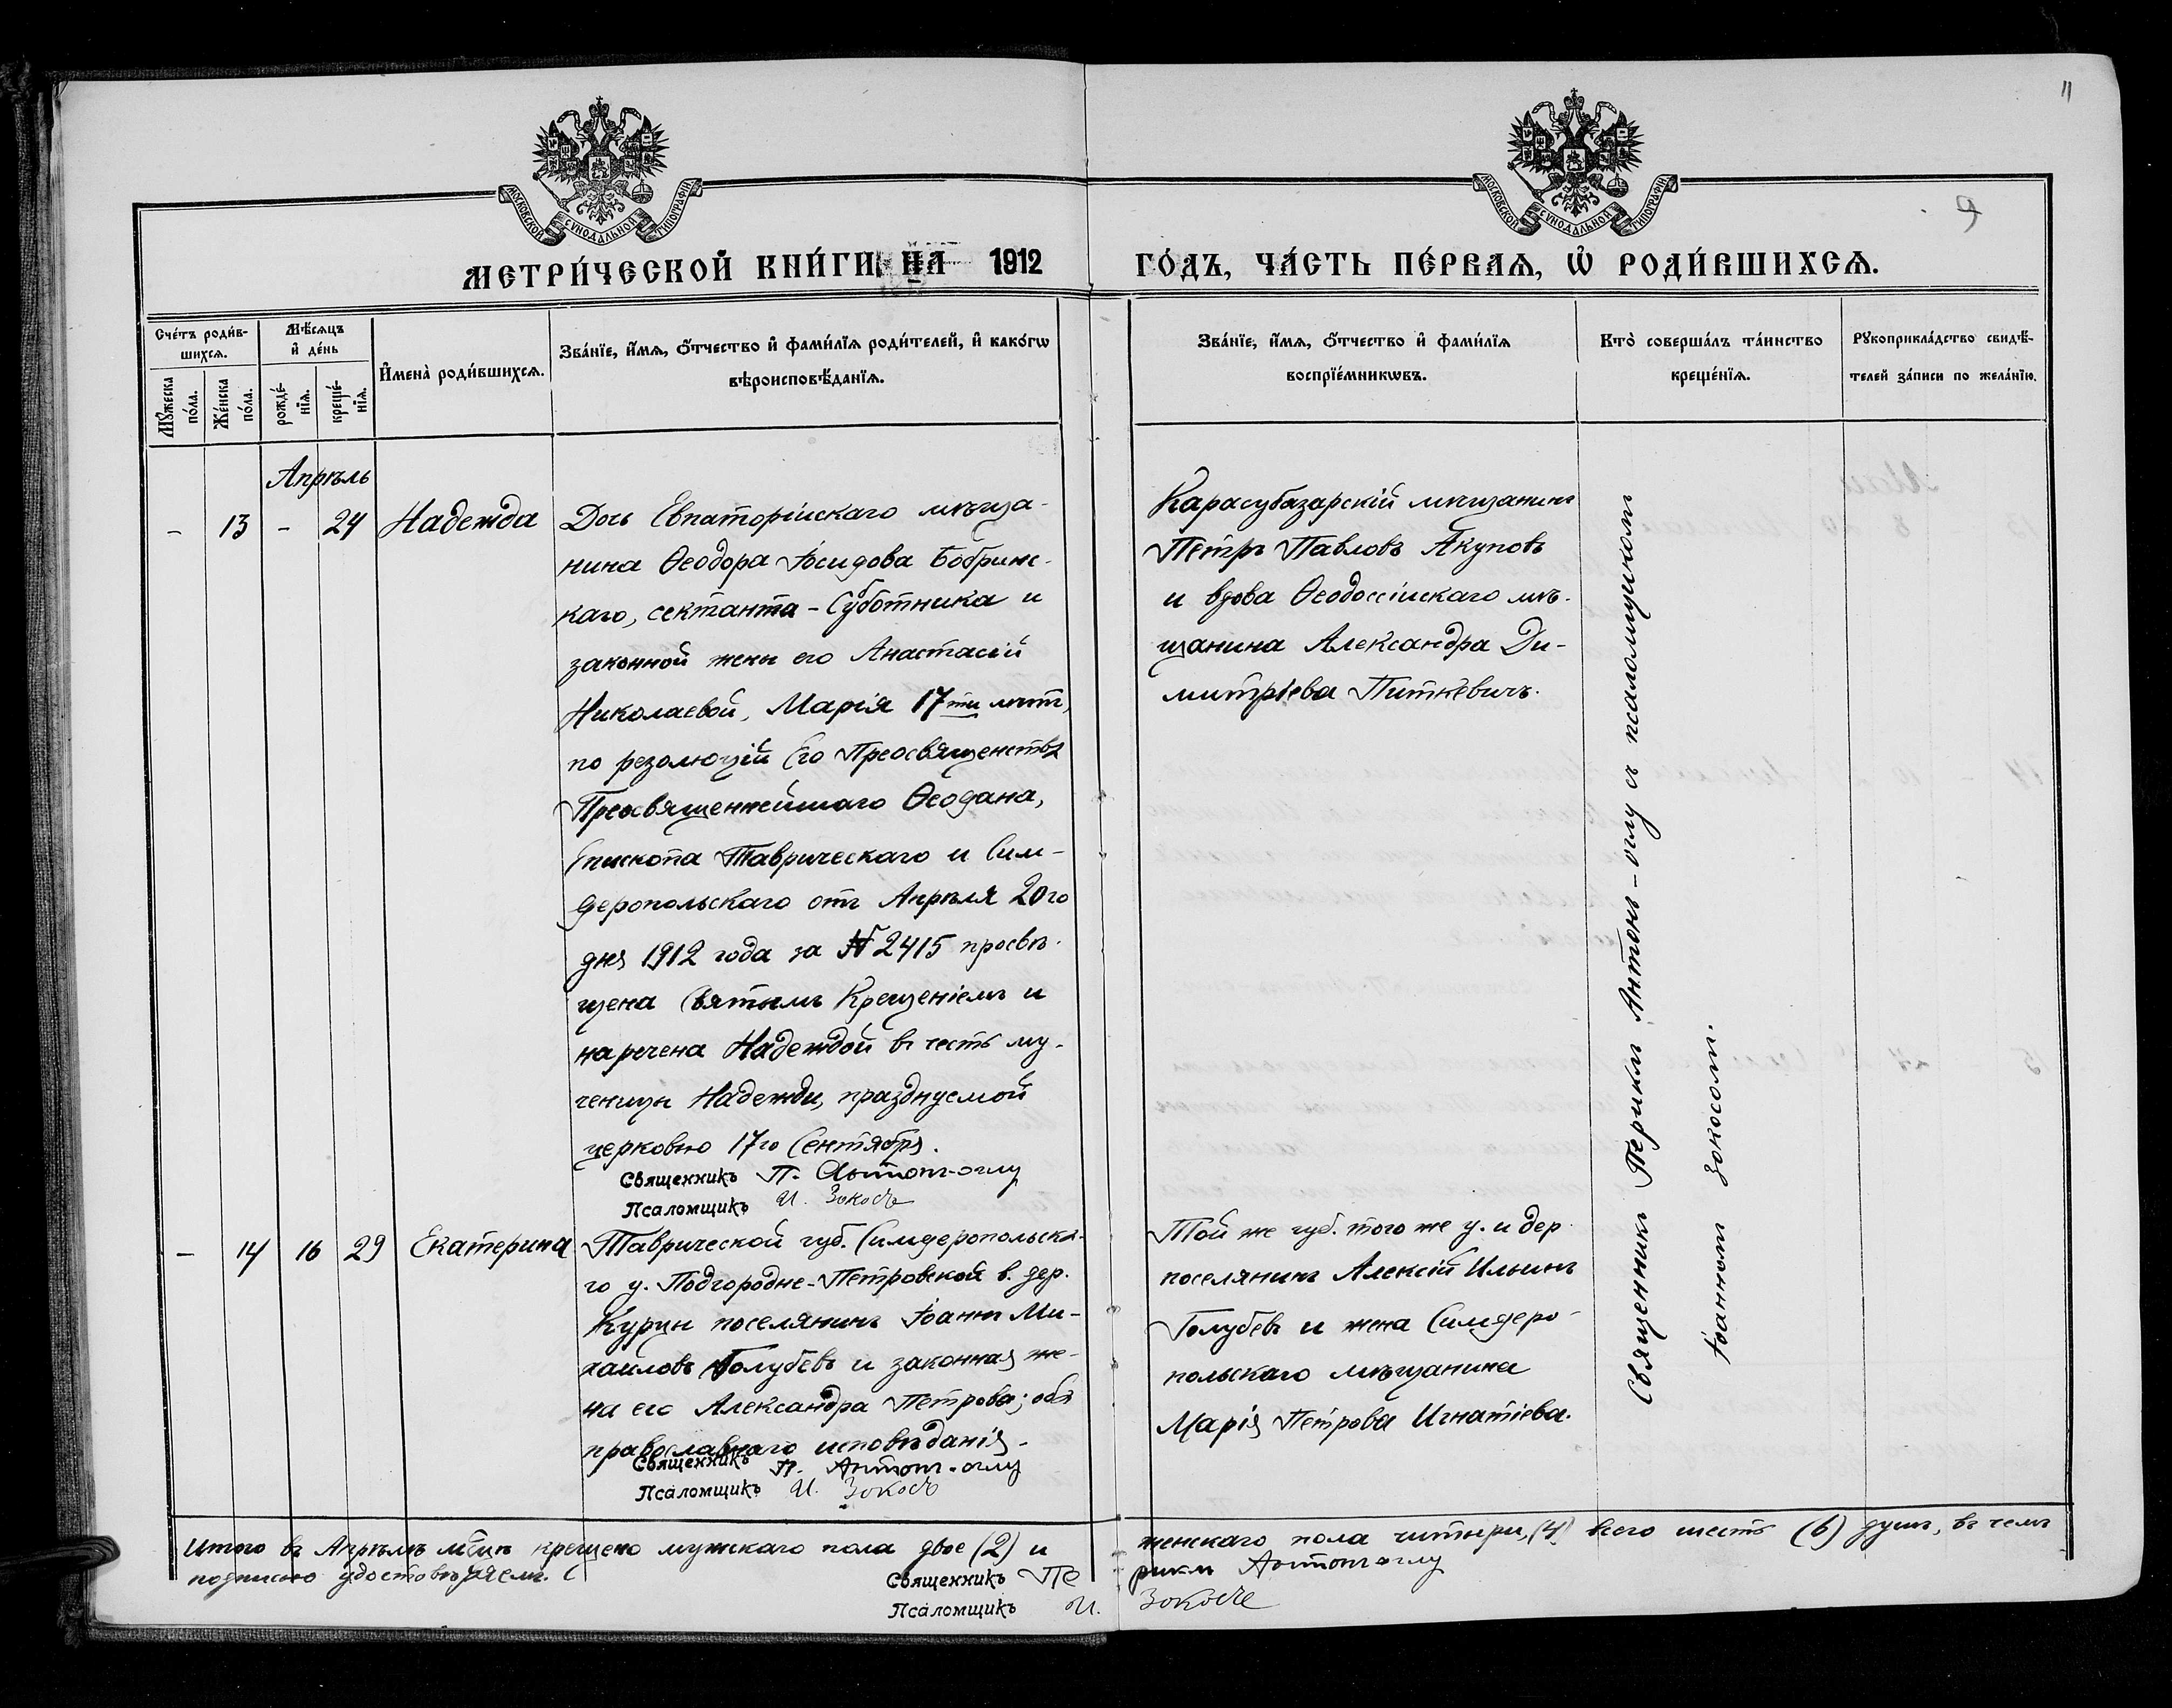 11
9
МОСКОВСКОЙ СѴНОДАЛЬНОЙ ТИПОГРАФІИ
МОСКОВСКОЙ СѴНОДАЛЬНОЙ ТИПОГРАФІИ
МЕТРИ́ЧЕСКОЙ КНИ́ГИ НА 1912 ГО́ДЪ, ЧА́СТЬ ПЕ́РВАѦ, Ѡ҆ РОДИ́ВШИХСѦ.
Сче́тъ роди́в-
шихсѧ.
Мꙋ́жеска по́ла.
Же́нска по́ла.
Мѣ́сѧцъ
и҆ де́нь
рожде́-
нїѧ.
креще́-
нїѧ.
И҆мена̀ роди́вшихсѧ.
Зва́нїе, и҆́мѧ, о҆́тчество и҆ фами́лїѧ роди́телей, и҆ како́гѡ
вѣроисповѣ́данїѧ.
Зва́нїе, и҆́мѧ, о҆́тчество и҆ фами́лїѧ
воспрїе́мникѡвъ.
Кто̀ соверша́лъ та́инство
креще́нїѧ.
Рꙋкоприкла́дство свидѣ́-
телей за́писи по жела́нїю.
Апрѣль
- 13 - 24 Надежда
Дочь Евпаторійскаго мѣща-
нина Ѳеодора Іосидова Бобринс-
каго, сектанта - Субботника и
законной жены его Анастасіи
Николаевой, Марія 17ти лѣтъ,
по резолюціи Его Преосвященства
Преосвященнѣйшаго Ѳеофана,
Епископа Таврическаго и Сим-
феропольскаго отъ Апрѣля 20го
дня 1912 года за № 2415 просвѣ-
щена Святымъ Крещеніемъ и
наречена Надеждой въ честь му-
ченицы Надежды, празднуемой
церковью 17го Сентября.
Священникъ П. Антонъ-оглу
Псаломщикъ И. Зокосъ
Карасубазарскій мѣщанинъ
Петръ Павловъ Акуловъ
и вдова Ѳеодоссійскаго мѣ-
щанина Александра Ди-
митріева Питкевичъ.
Священникъ Периклъ Антонъ-оглу съ псаломщикомъ
Іоанномъ Зокосомъ.
- 14 16 29 Екатерина
Таврической губ. Симферопольска-
го у. Подгородне-Петровской в. дер.
Курцы поселянинъ Іоаннъ Ми-
хаиловъ Голубевъ и законная же-
на его Александра Петрова; оба
православнаго исповѣданія.
Священникъ П. Антонъ-оглу
Псаломщикъ И. Зокосъ
Той же губ. того же у. и дер.
поселянинъ Алексій Ильинъ
Голубевъ и жена Симферо-
польскаго мѣщанина
Марія Петрова Игнатіева.
Итого въ Апрѣлѣ м̃цѣ крещено мужскаго пола двое (2) и женскаго пола читыри, (4) всего шесть (6) душъ, въ чемъ
подписью удостовѣряемъ.
Священникъ Периклъ Антонъ-оглу
Псаломщикъ И. Зокосъ